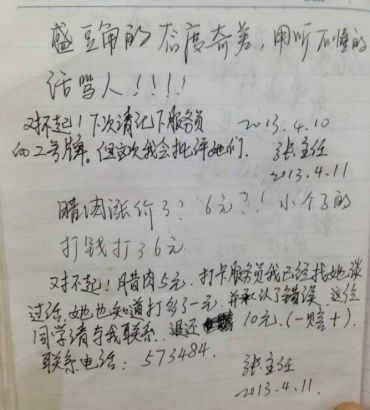 盛豆角的态度奇差,用听不懂的
话骂人!!!!
2013.4.10
对不起!下次请记下服务员
的工号牌。但这次我会批评她们。 张主任
2013.4.11
腊肉涨价了? 6元?! 小个子的
打钱打了6元
对不起!腊肉5元,打卡服务员我已经找她谈
过话,她也知道打多了一元,并承认了错误,这位
同学请与我联系,退还 10元.(一赔十).
联系电话: 573484. 张主任
2013.4.11.